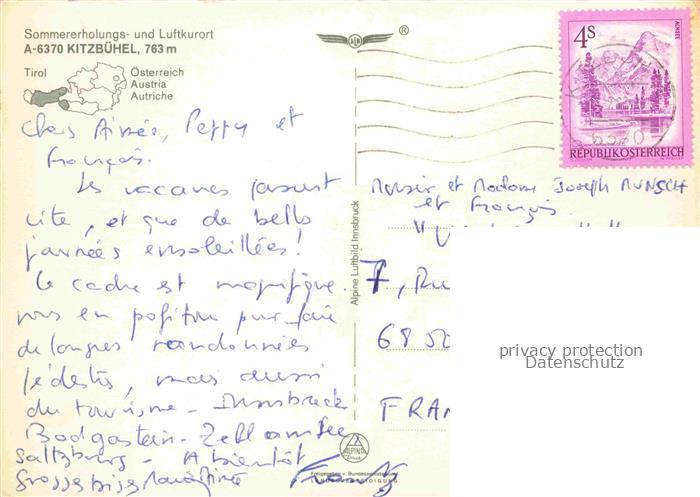 Sommererholungs- und Luftkurort
A-6370 KITZBÜHEL, 763 m
Tirol
Österreich
Austria
Autriche
®
4S
ALMSEE
REPUBLIK ÖSTERREICH
Chers Aimée, Peppy et
François.
Les vacances passent
vite, et que de belles
journées ensoleillées!
Le cadre est magnifique.
en position pour faire
de longues randonnées
pédestres, mais aussi
du tourisme - Innsbruck
Badgastein - Zell am See
Saltzburg - A bientôt
Grosses bises
Alpine Luftbild Innsbruck
Monsieur et Madame Joseph MUNSCH
et François
7, Ru
68
FRAN
privacy protection
Datenschutz
ALPINA
Freigegeben v. Bundesministerium
LANDESVERTEIDIGUNG